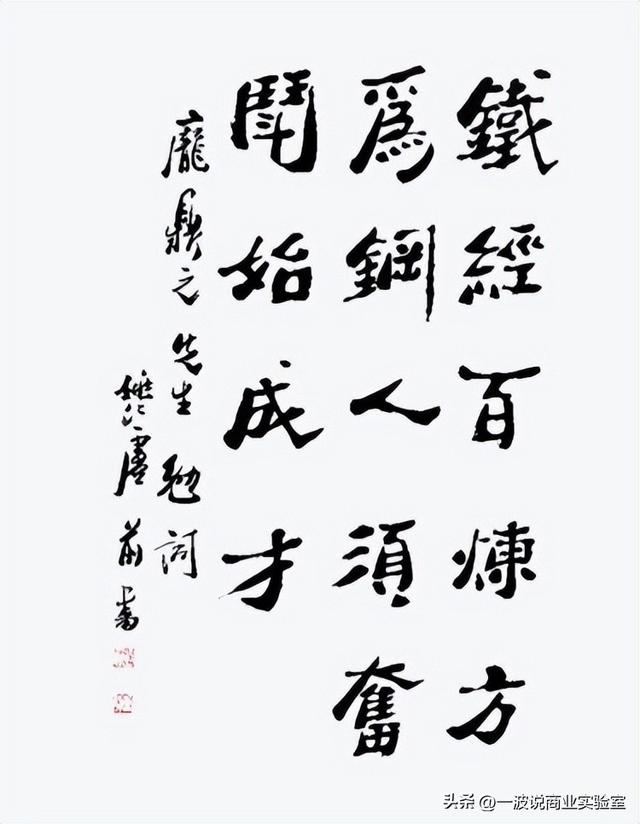 鐵經百煉方
爲鋼人須奮
鬦始成才
龐鼎之先生勉詞
前書
头条 @一波说商业实验室